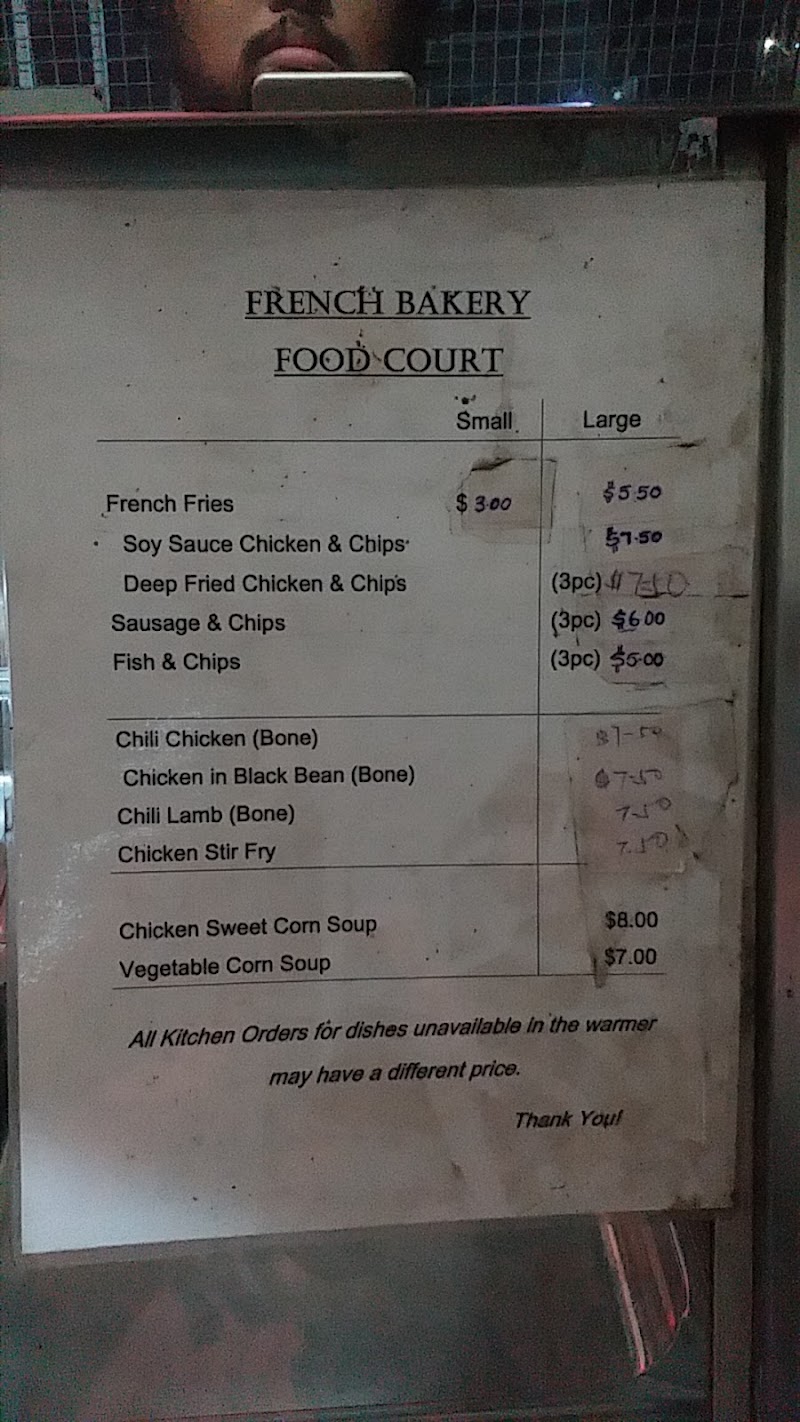 FRENCH BAKERY
FOOD COURT
Small Large
French Fries $ 3.00 $5.50
Soy Sauce Chicken & Chips $7.50
Deep Fried Chicken & Chips (3pc) $7-50
Sausage & Chips (3pc) $6.00
Fish & Chips (3pc) $5.00
Chili Chicken (Bone) $7-50
Chicken in Black Bean (Bone) $7-50
Chili Lamb (Bone) 7-50
Chicken Stir Fry 7.50
Chicken Sweet Corn Soup $8.00
Vegetable Corn Soup $7.00
All Kitchen Orders for dishes unavailable in the warmer
may have a different price.
Thank You!